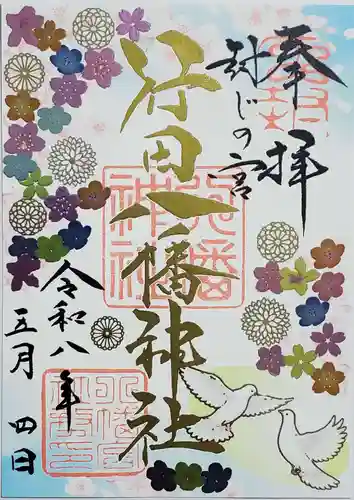 奉拝
封じの宮
行田八幡神社
令和八年
五月 四日